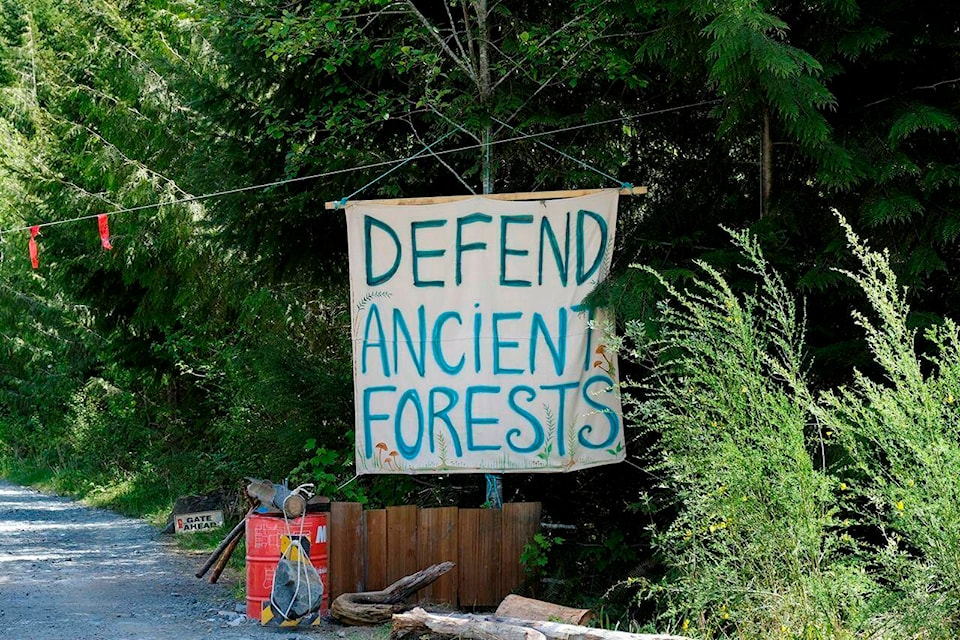 DEFEND
ANCiENT
FORESTS
GATE
AHEAD